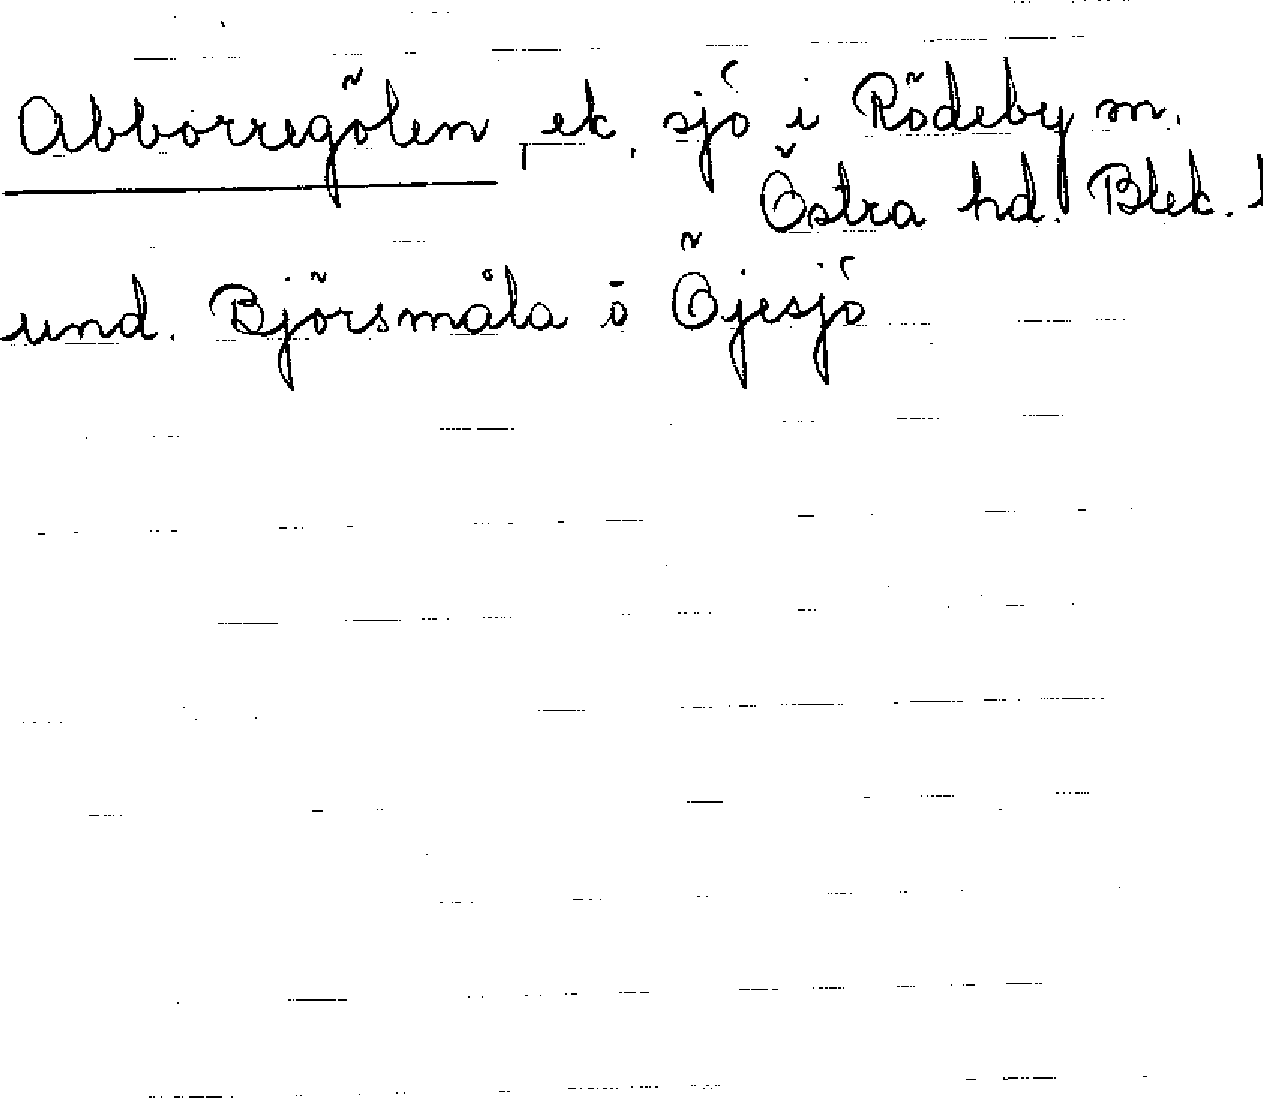 Abborregölen, ek. sjö i Rödeby sn.
Östra hd. Blek. l
und. Björsmåla ö Öjesjö